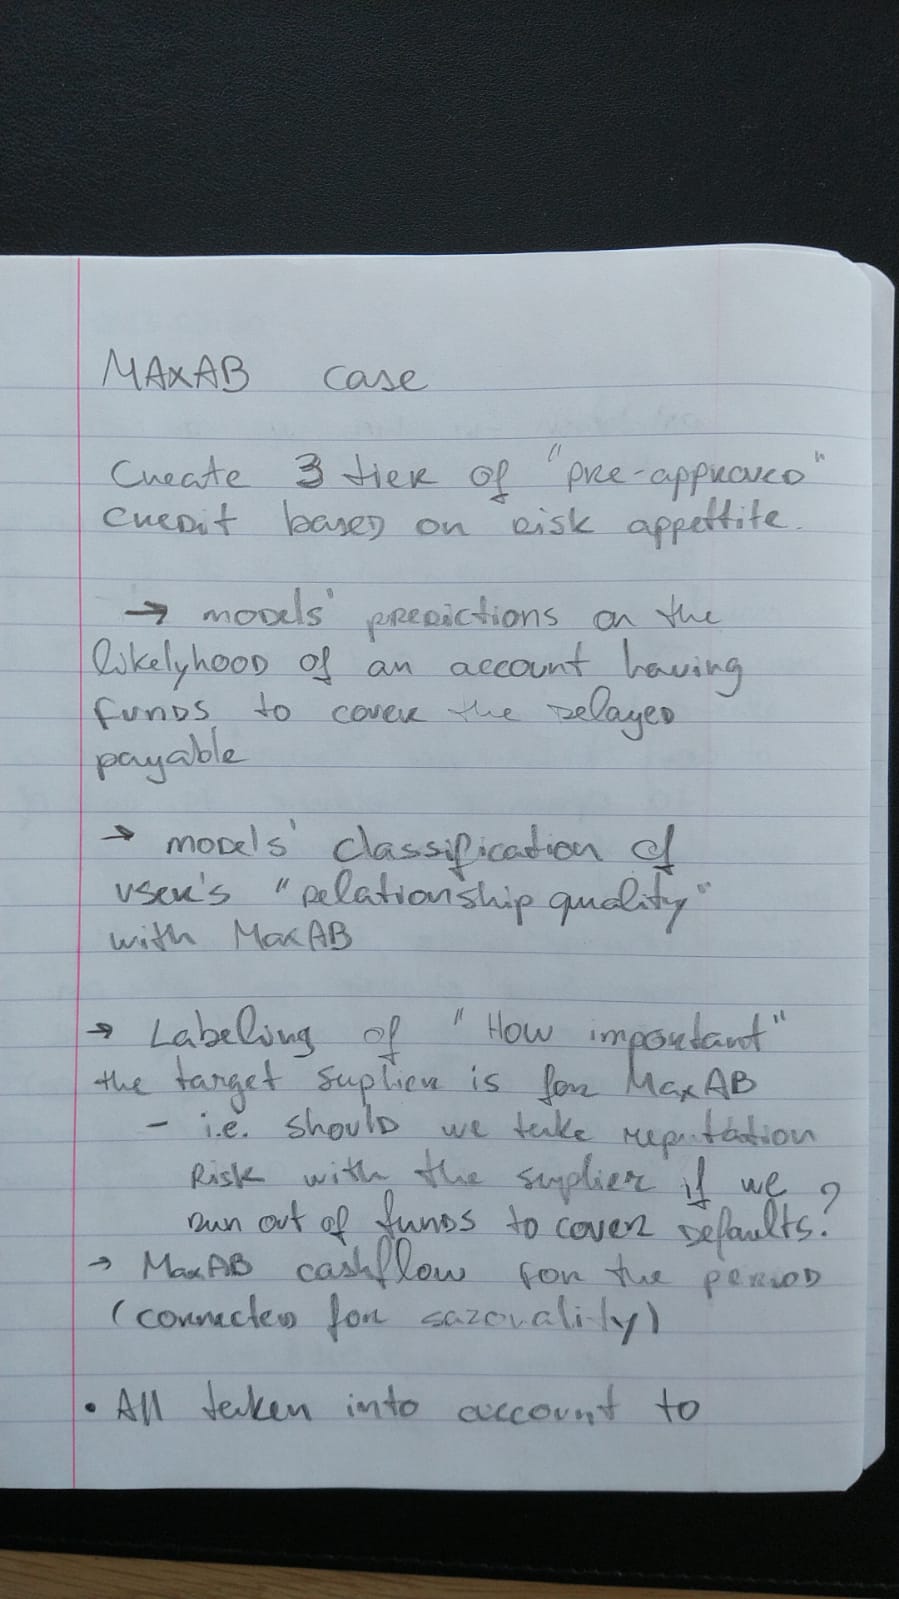 MAxAB case
Create 3 tier of "pre-approved"
credit based on risk appettite.
→ models' predictions on the
likelyhood of an account having
funds to cover the delayed
payable
→ models' classification of
user's "relationship quality"
with MaxAB
→ Labeling of "How important"
the target suplier is for MaxAB
- i.e. should we take reputation
Risk with the suplier if we
run out of funds to cover defaults?
→ MaxAB cashflow for the period
(corrected for sazonality)
• All taken into account to